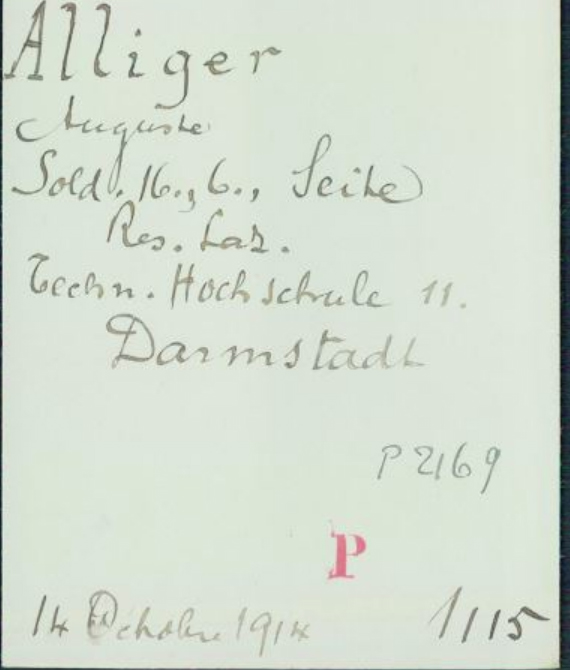 Alliger
Auguste
Sold. 16., 6., Seite
Res. Laz.
Techn. Hochschule 11.
Darmstadt
P 2169
P
14 Octobre 1914
1115